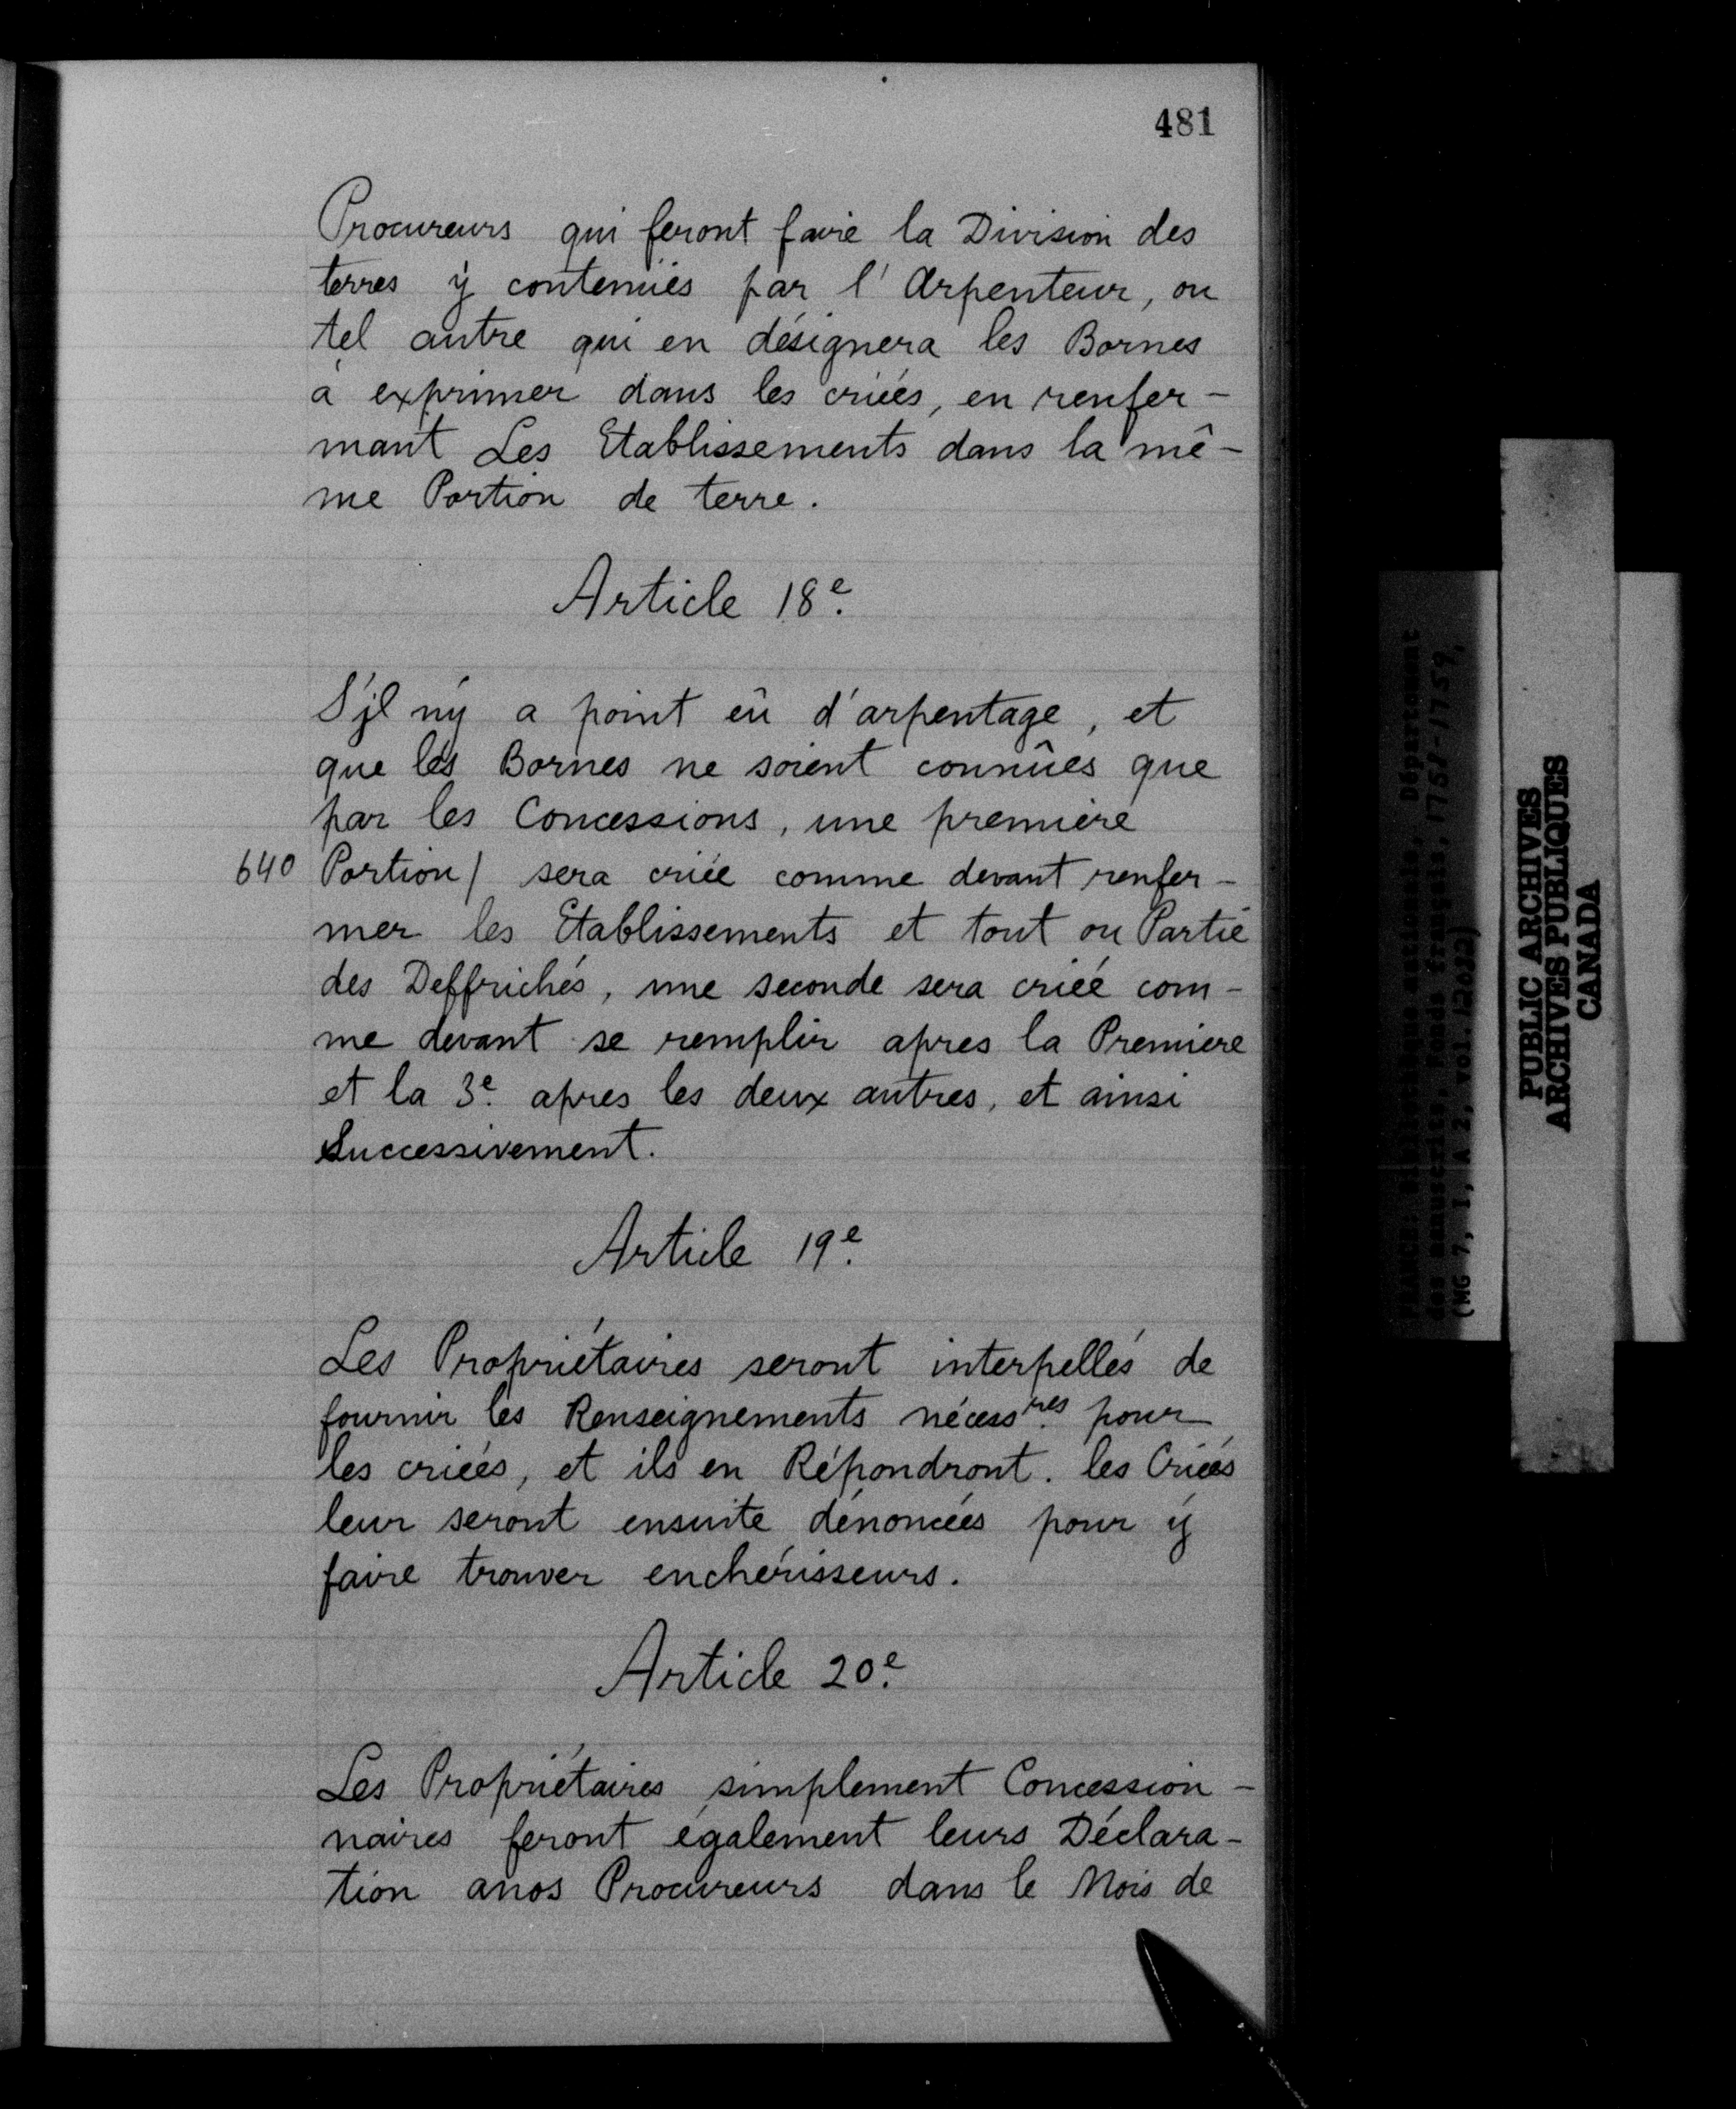 481
Procureurs qui feront faire la Division des
terres ÿ contenües par l'Arpenteur, ou
tel autre qui en désignera les Bornes
à exprimer dans les criées, en renfer-
mant Les Etablissements dans la mê-
me Portion de terre.
Article 18e.
S'jl n'y a point eû d'arpentage, et
que les Bornes ne soient connûes que
par les Concessions, une premiere
640 Portion/ sera criée comme devant renfer-
mer les Etablissements et tout ou Partie
des Deffrichés, une seconde sera criée com-
me devant se remplir apres la Premiere
et la 3e. apres les deux autres, et ainsi
Successivement.
Article 19e.
Les Propriétaires seront interpellés de
fournir les Renseignements nécessres. pour
les criées, et ils en Répondront. les Criées
leur seront ensuite dénoncées pour ÿ
faire trouver enchérisseurs.
Article 20e.
Les Propriétaires simplement Concession-
naires feront également leurs Déclara-
tion anos Procureurs dans le Mois de
Département
des manuscrits, Fonds français, 1758-1759,
(MG 7, I, A 2, vol. 12022)
PUBLIC ARCHIVES
ARCHIVES PUBLIQUES
CANADA